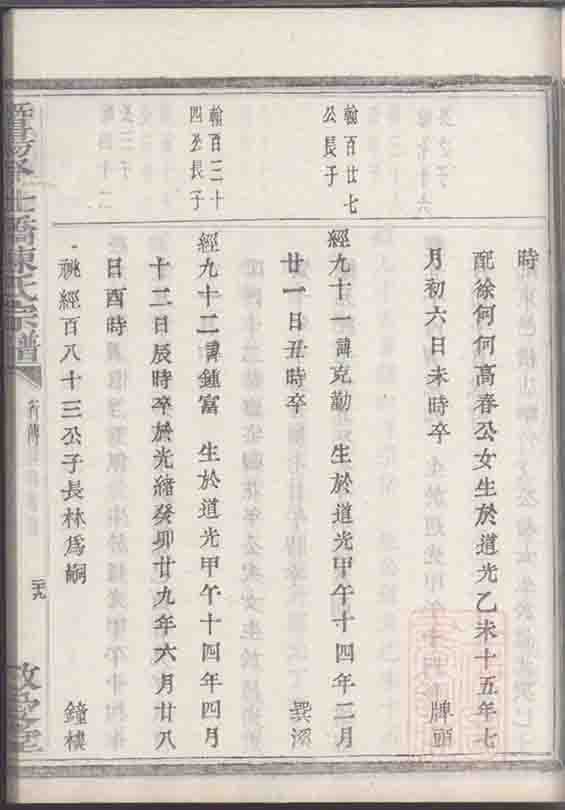 時
配徐何何高春公女生於道光乙未十五年七
月初六日未時卒　牌頭
翰百廿七
公長子
經九十一諱克勤　生於道光甲午十四年二月
廿一日丑時卒
翰百三十
四公長子
經九十二諱鍾富　生於道光甲午十四年四月
十二日辰時卒於光緒癸卯廿九年六月廿八
日酉時
祧經百八十三公子長林爲嗣　鐘樓
橋陳氏宗譜
行傳